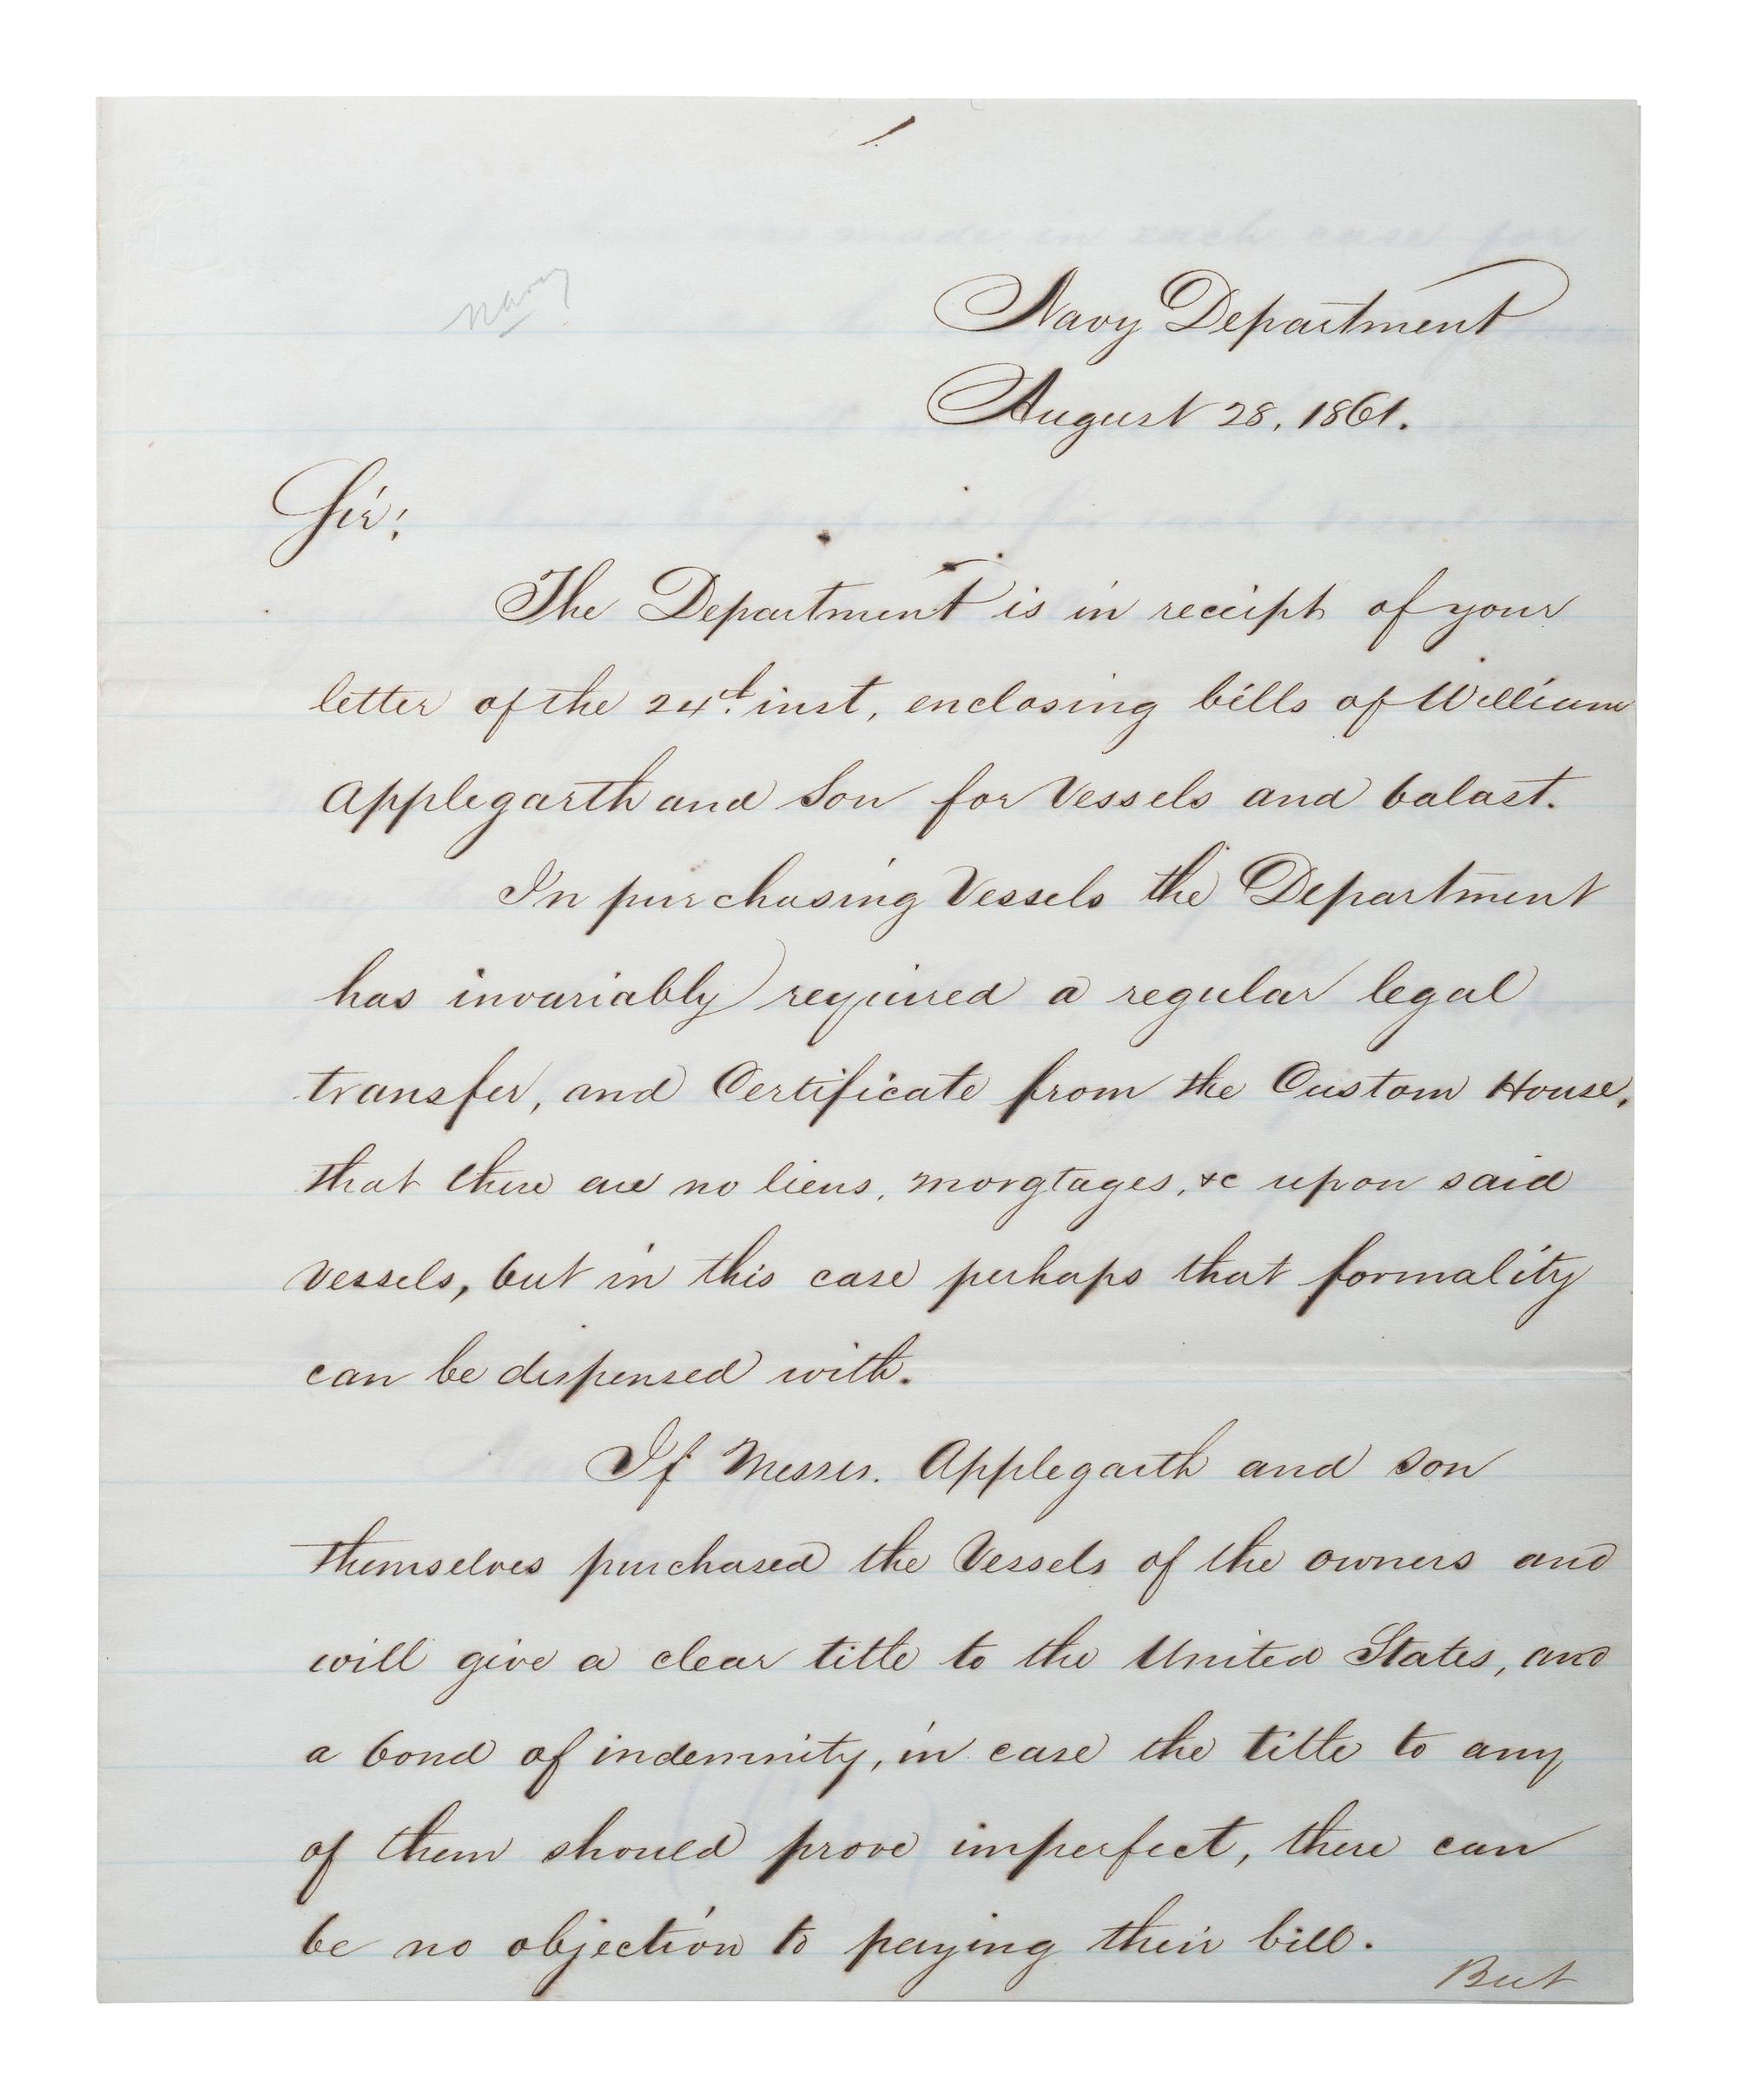 Navy
Navy Department
August 28, 1861.
Sir:
The Department is in receipt of your
letter of the 24th inst, enclosing bills of William
Applegarth and Son for Vessels and balast.
In purchasing Vessels the Department
has invariably required a regular legal
transfer, and Certificate from the Custom House,
that there are no liens, morgtages, &c upon said
vessels, but in this case perhaps that formality
can be dispensed with.
If Messrs. Applegarth and Son
themselves purchased the Vessels of the owners and
will give a clear title to the United States, and
a bond of indemnity, in case the title to any
of them should prove imperfect, there can
be no objection to paying their bill.
But